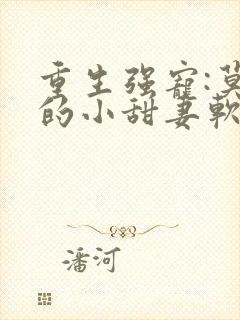 重生强宠:莫
的小甜妻軟
潘河